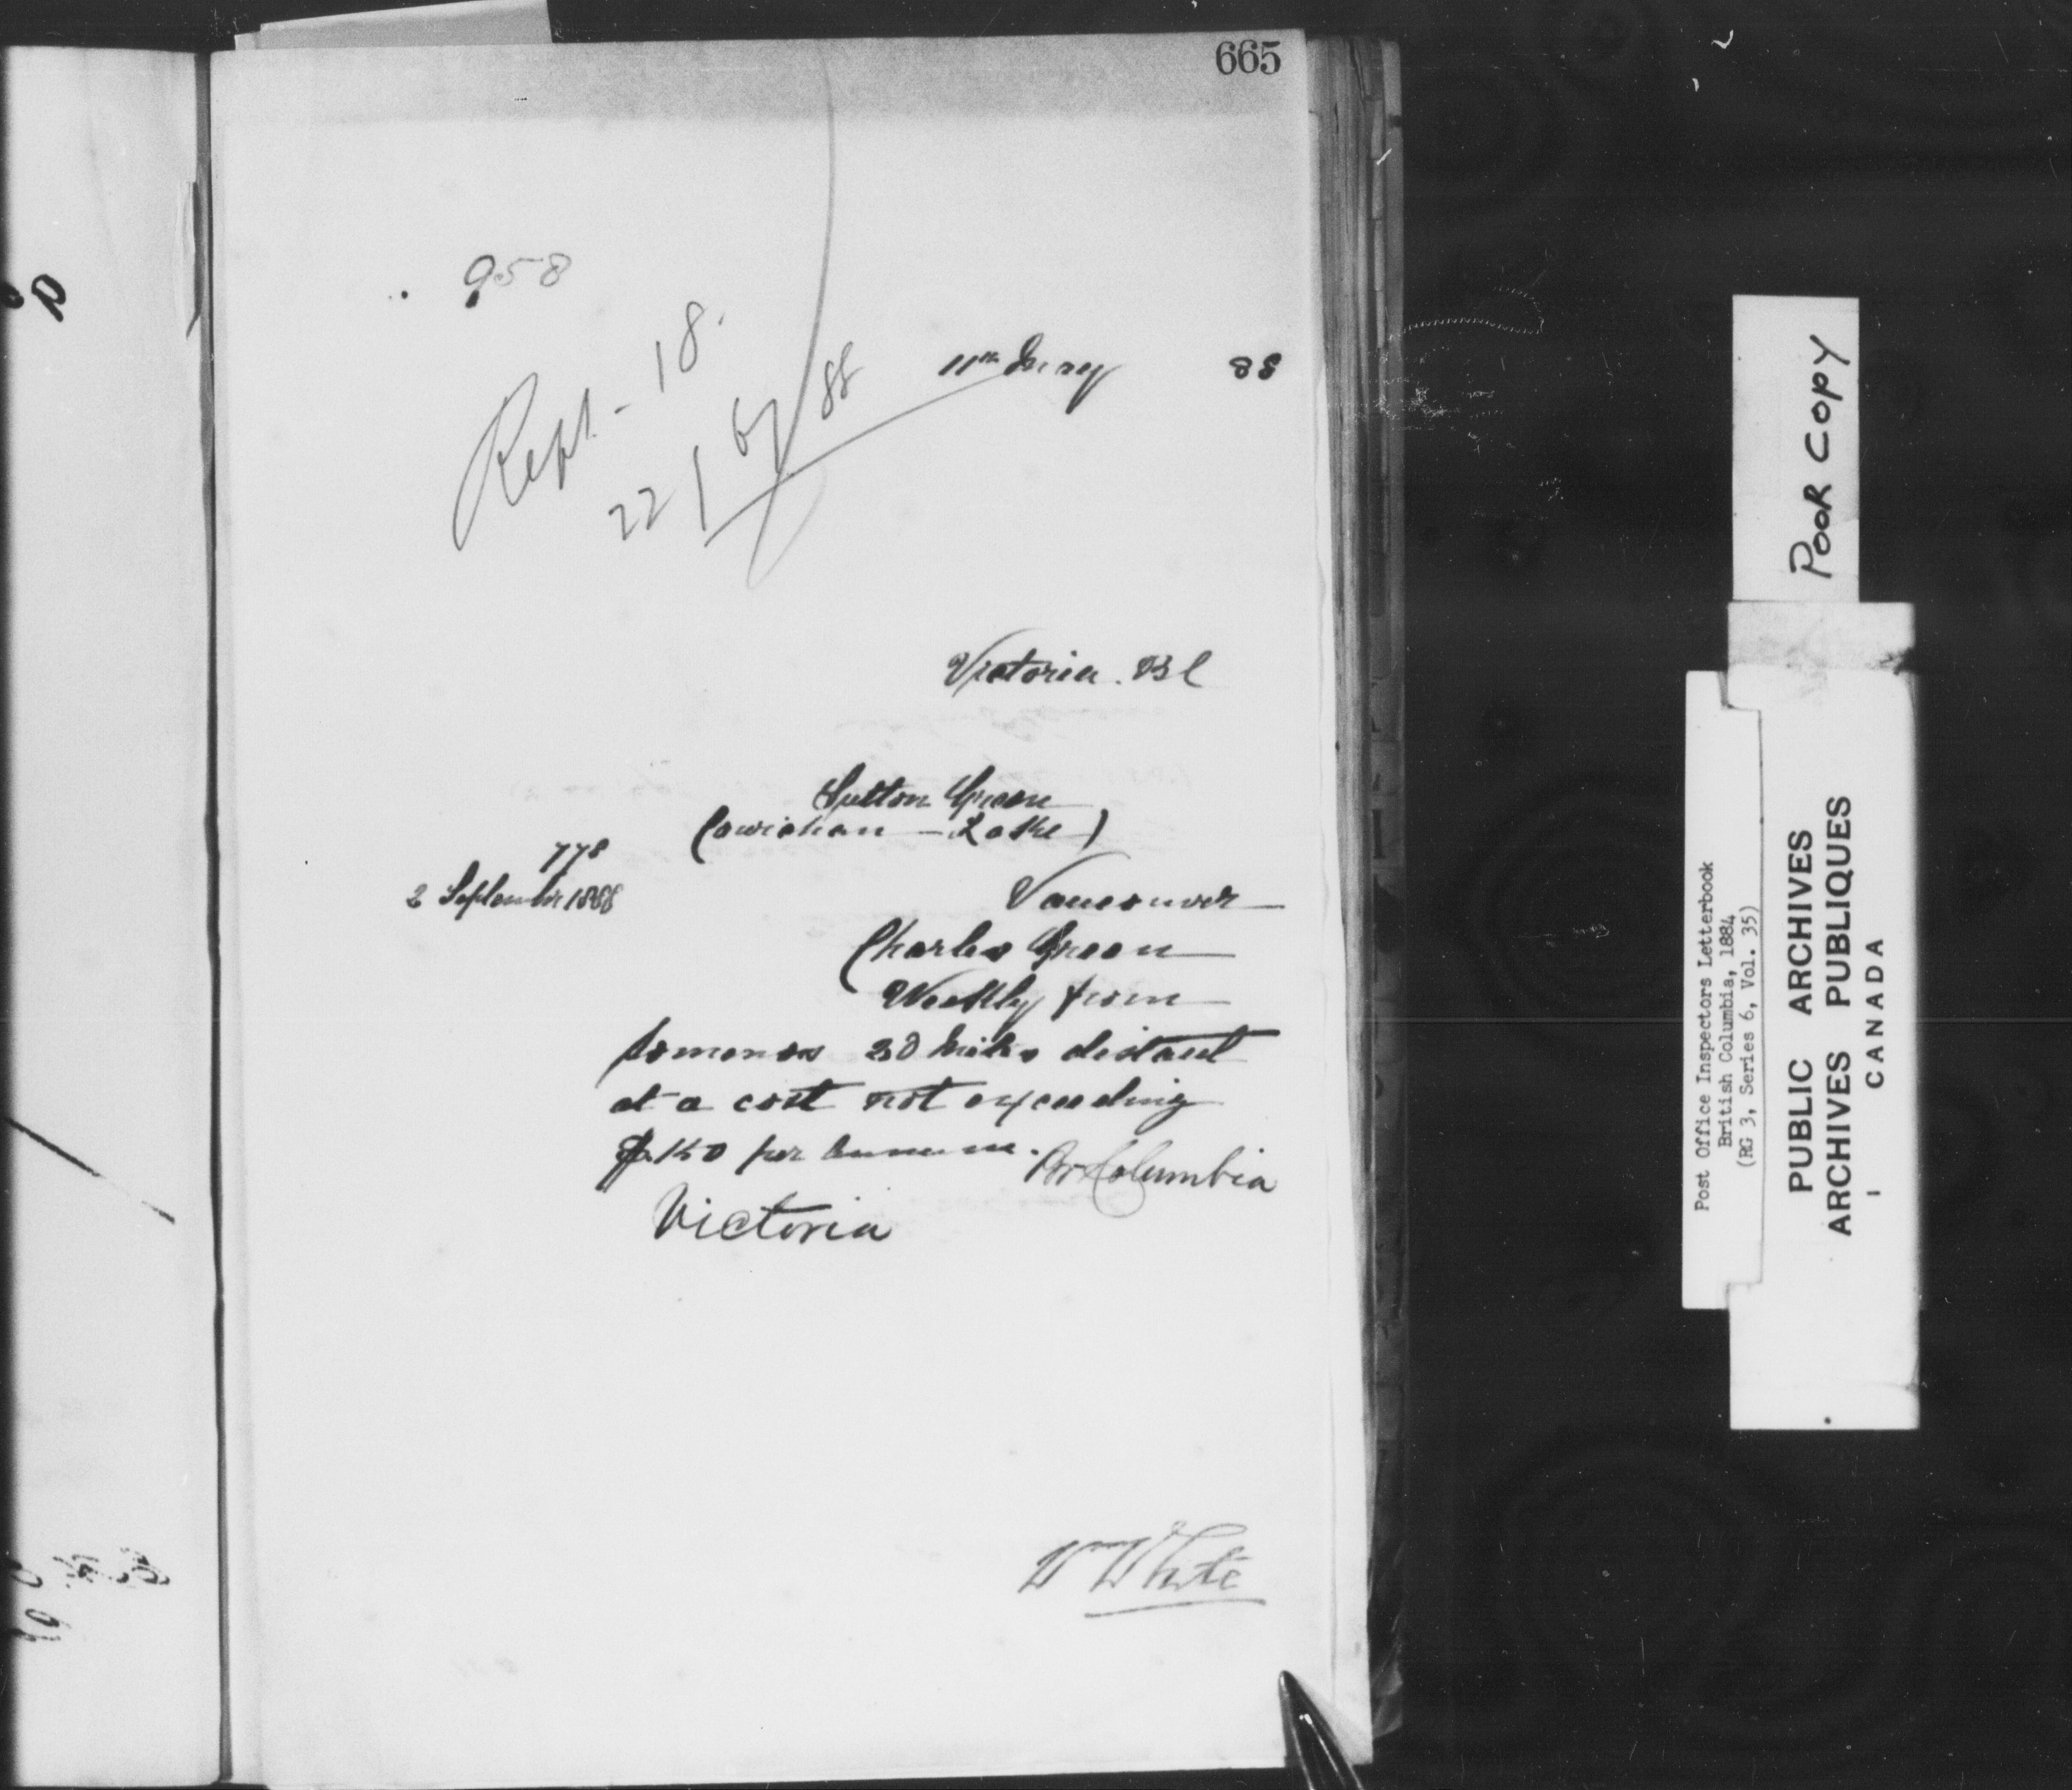 665
958
Rept. - 18.
22/6/88
11th May 88
Victoria. BC
Sutton Green
(Cowichan - Lake)
778
2 September 1886
Vancouver
Charles Green
Weekly from
Somenos 20 miles distant
at a cost not exceeding
$150 per annum.
Br Columbia
Victoria
W White
POOR COPY
Post Office Inspectors Letterbook
British Columbia, 1884
(RG 3, Series 6, Vol. 35)
PUBLIC ARCHIVES
ARCHIVES PUBLIQUES
CANADA